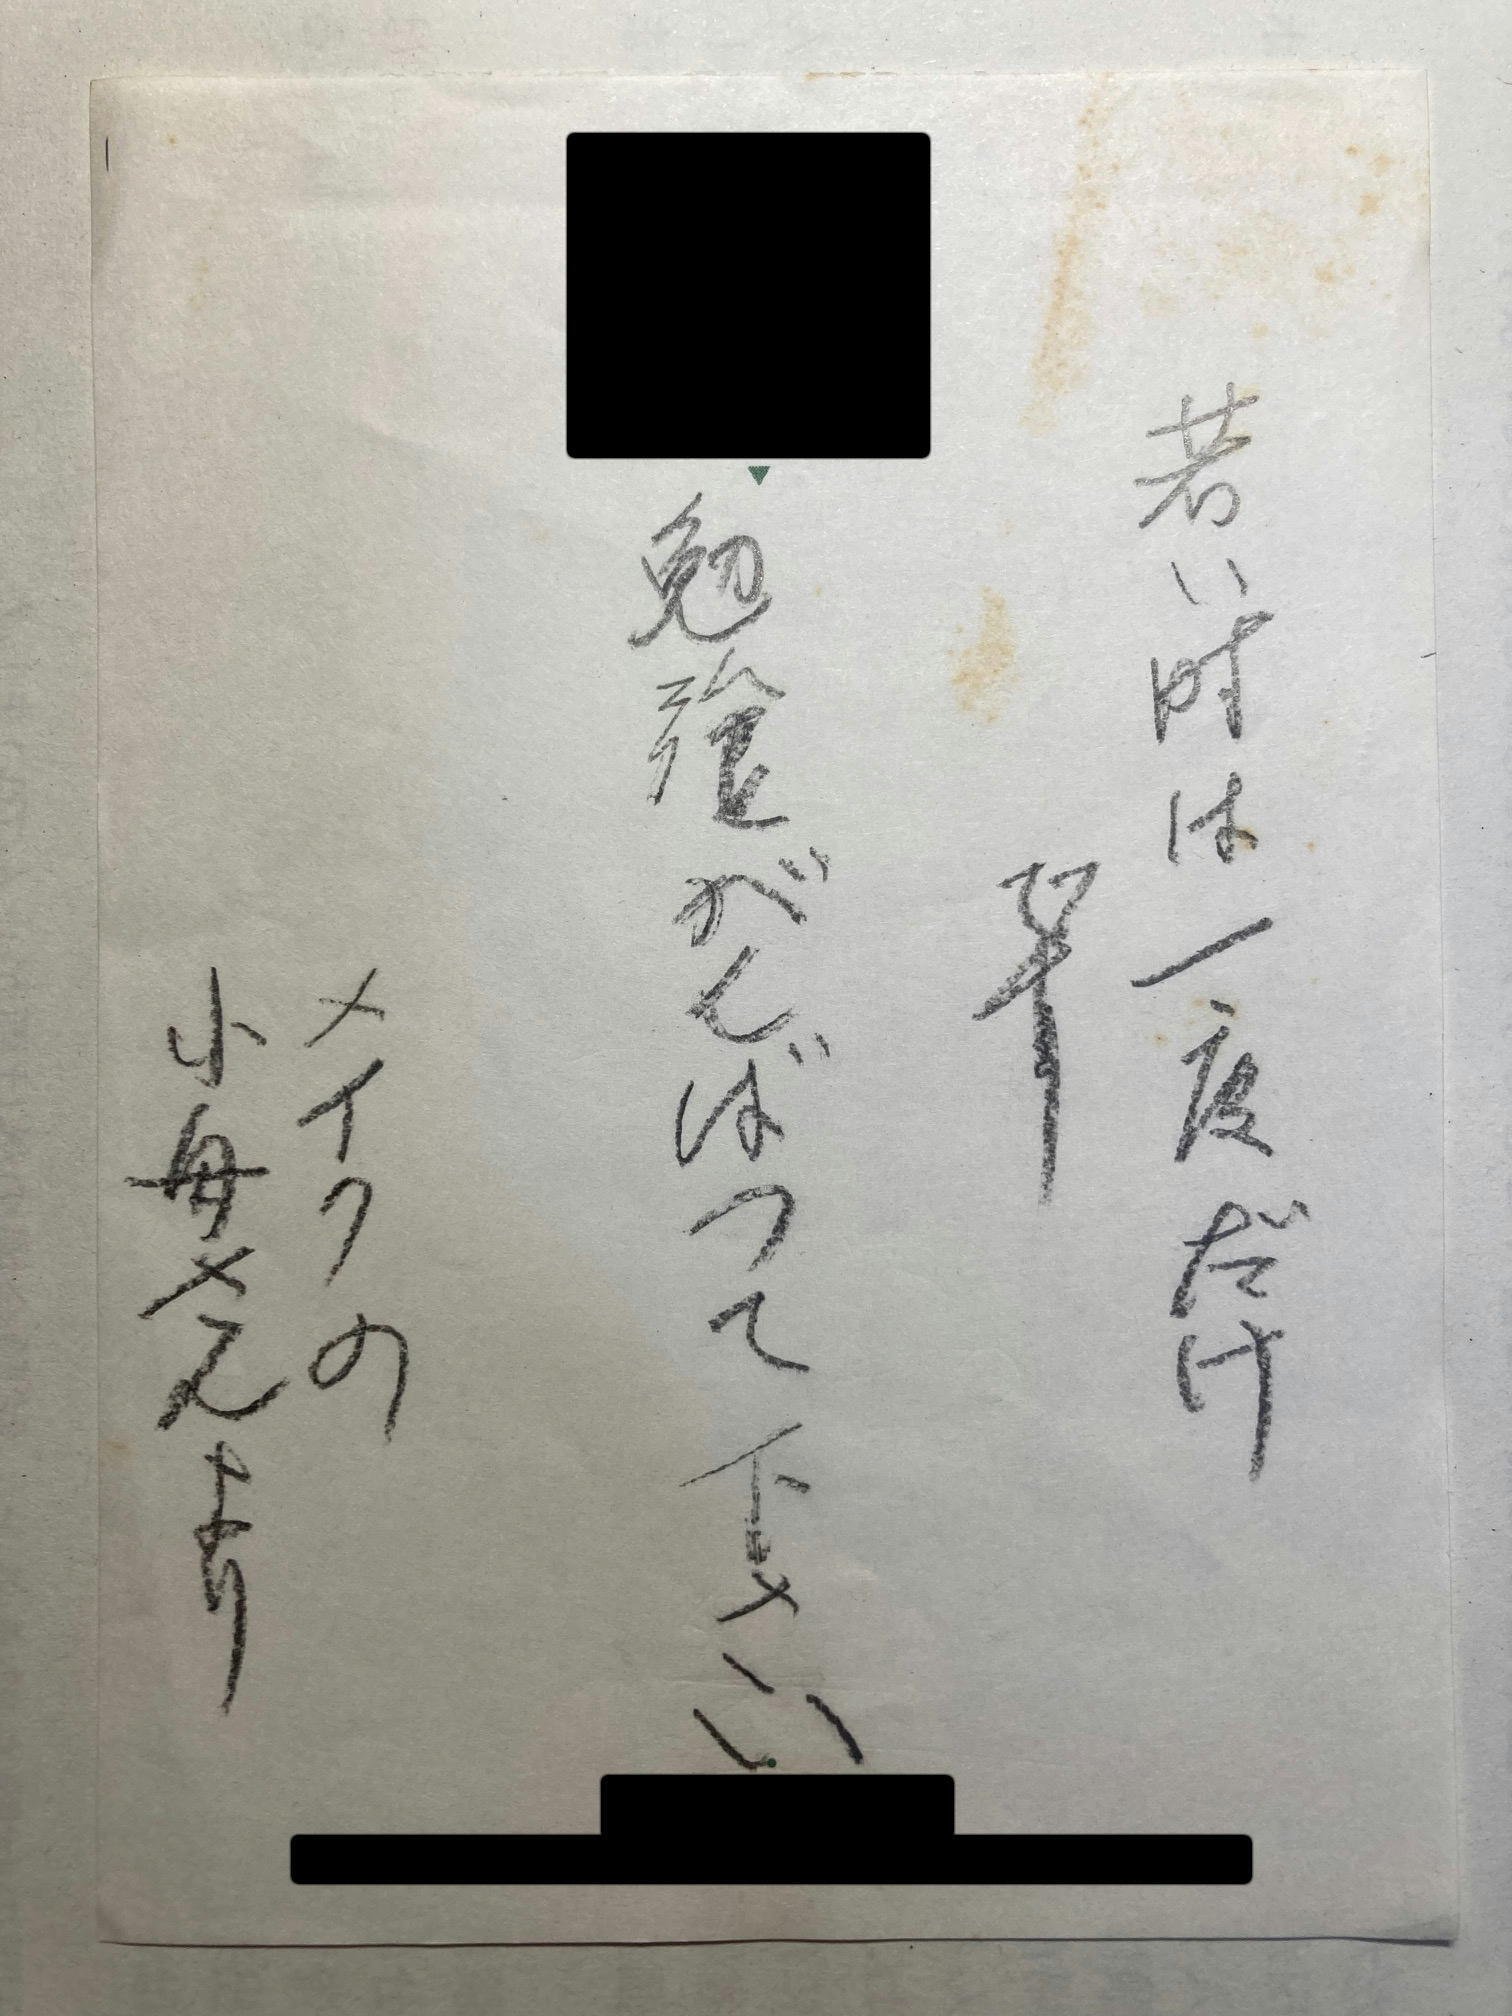 若い時は一度だけ
勉強がんばつて下さい
メイクの
小母さんより